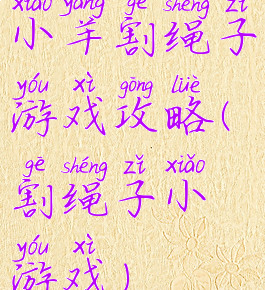 xiǎo yáng gē shéng zǐ
小羊割绳子
yóu xì gōng lüè
游戏攻略(
gē shéng zǐ xiǎo
割绳子小
yóu xì
游戏)